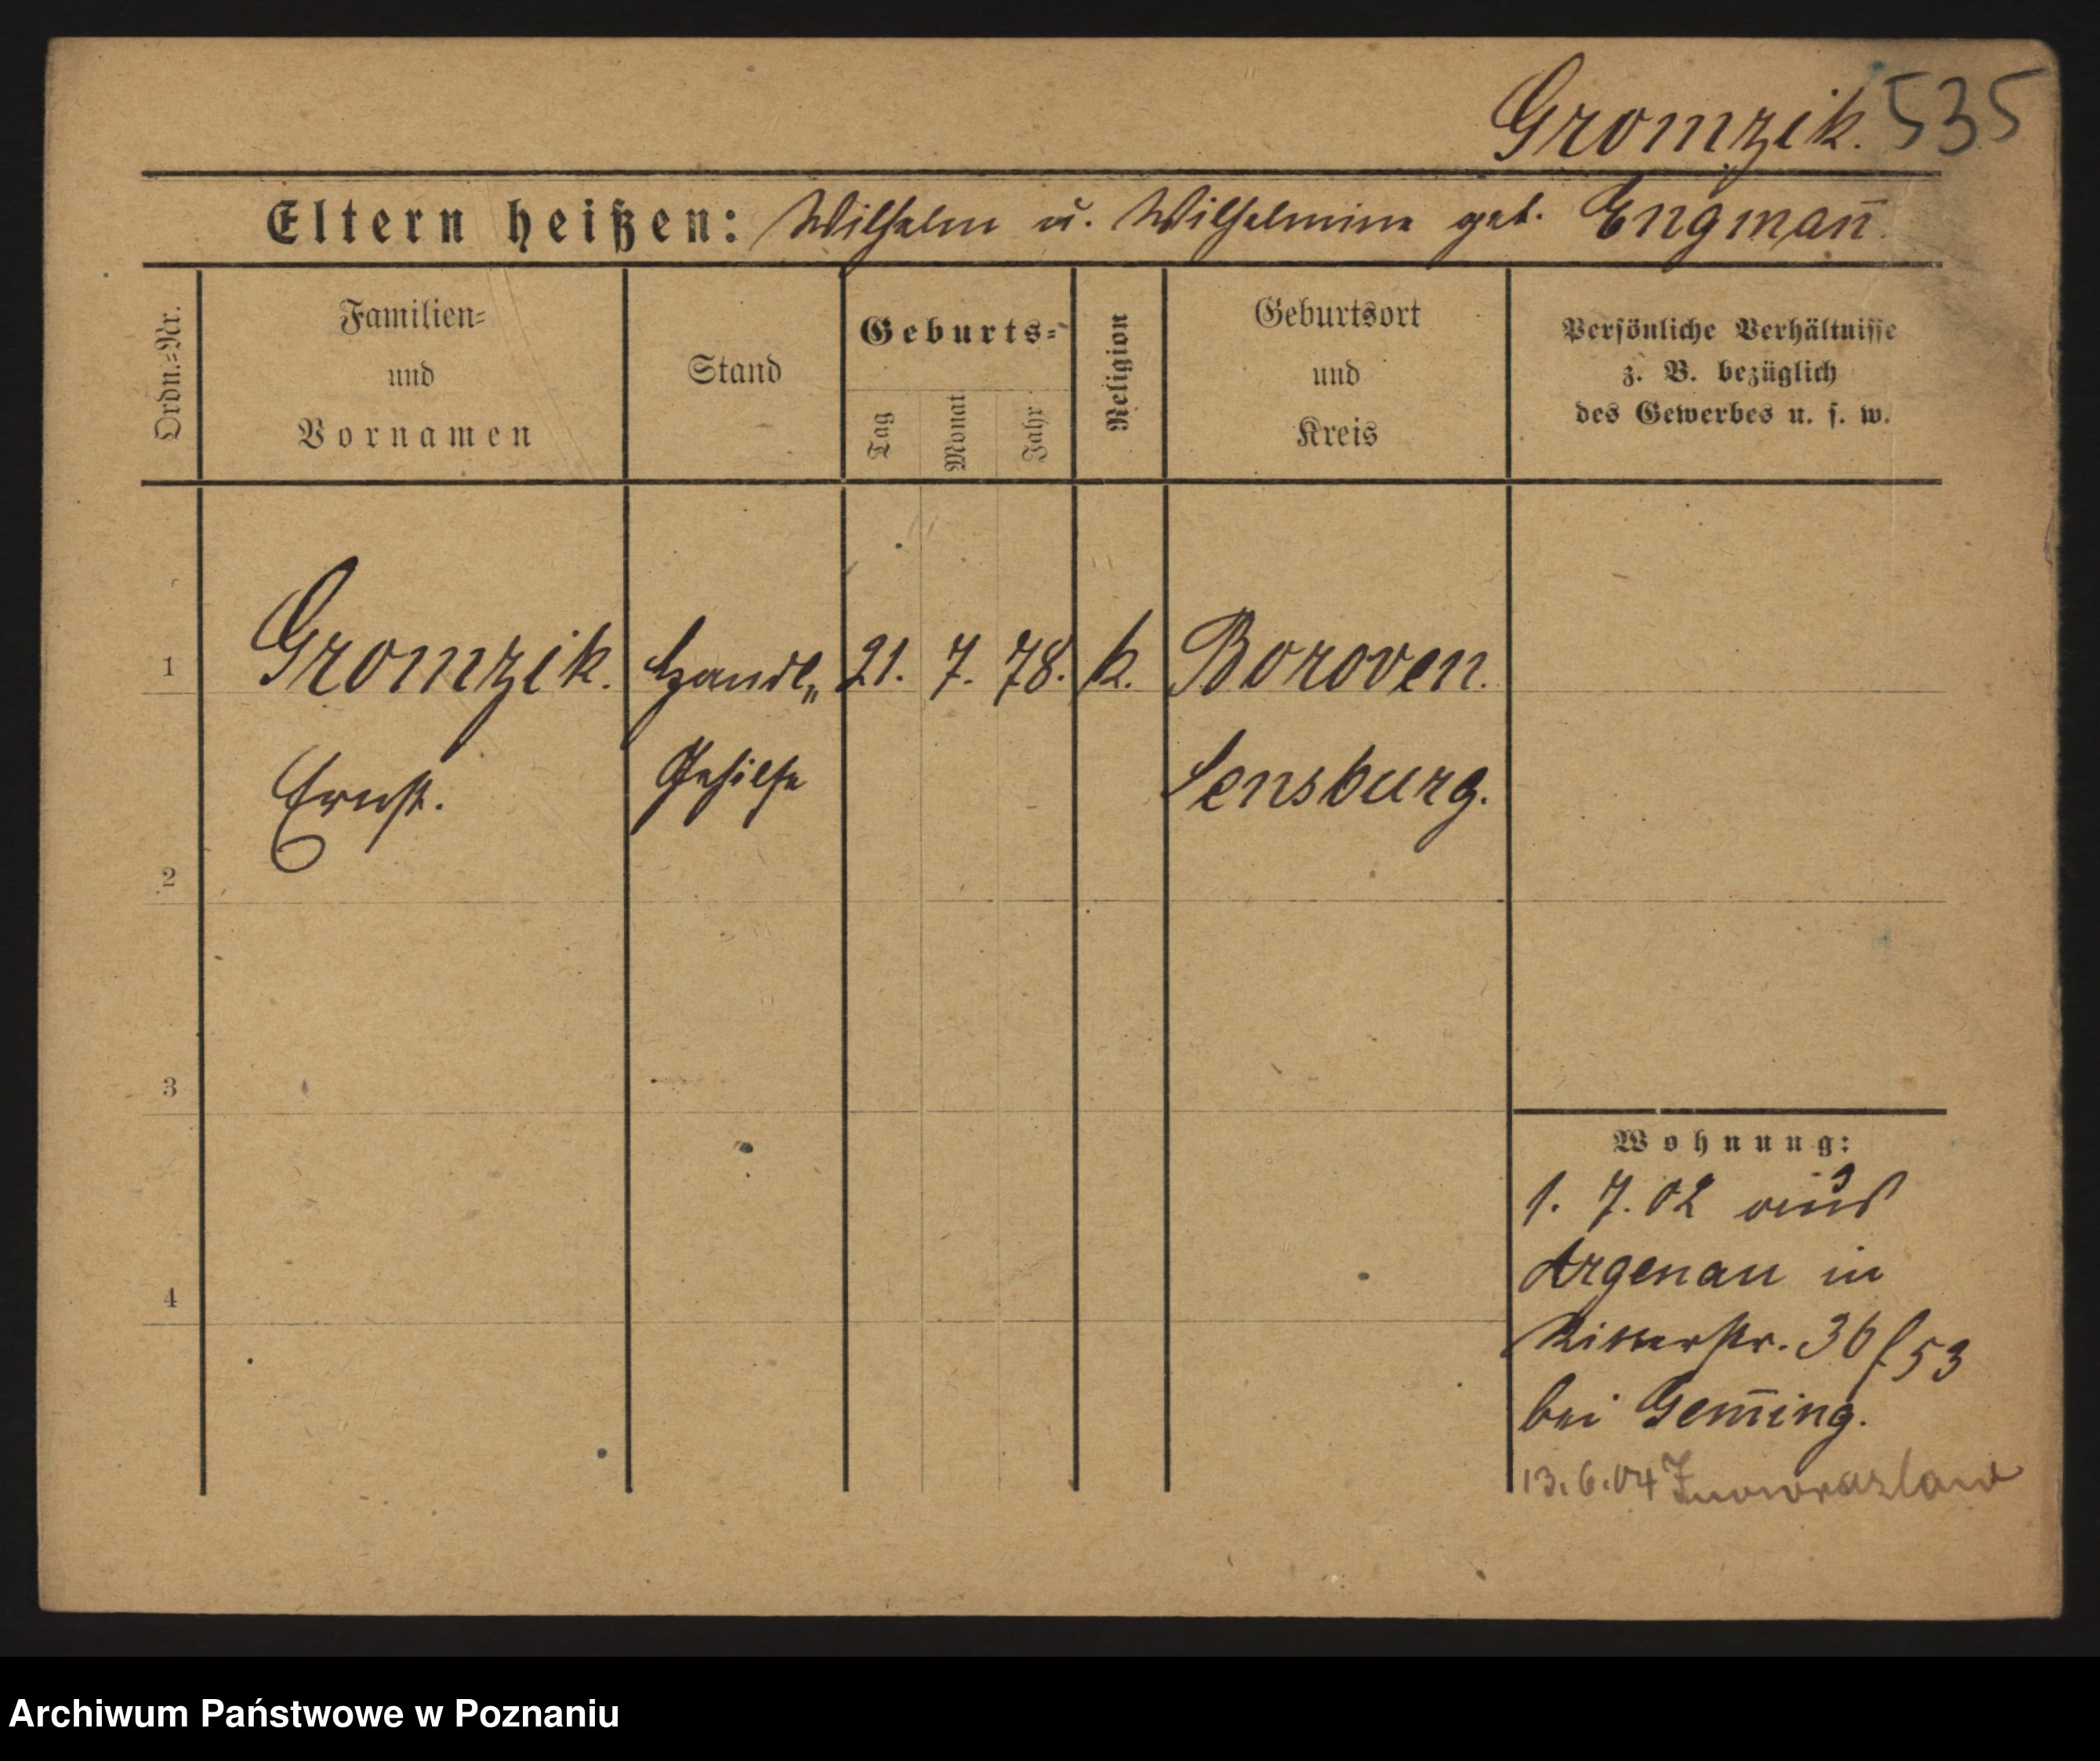 Gromzik. 535
Eltern heißen: Wilhelm u. Wilhelmine geb. Engmañ.
Ordn.=Nr.
Familien=
und
Vornamen
Stand
Geburts=
Tag
Monat
Jahr
Religion
Geburtsort
und
Kreis
Persönliche Verhältnisse
z. B. bezüglich
des Gewerbes u. s. w.
1 Gromzik. Handl„ 21. 7. 78. k. Boroven.
Ernst. Gehilfe Sensburg.
2
3
4
Wohnung:
1. 7. 02 aus
Argenau in
Ritterstr. 36/53
bei Gem̄ing.
13.6.04 Inowrazlaw
Archiwum Państwowe w Poznaniu